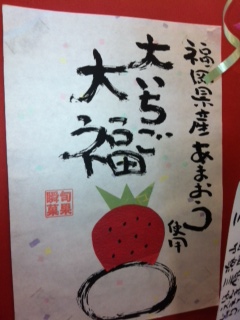 福岡県産あまおう使用
大いちご
大福
旬果
瞬菓